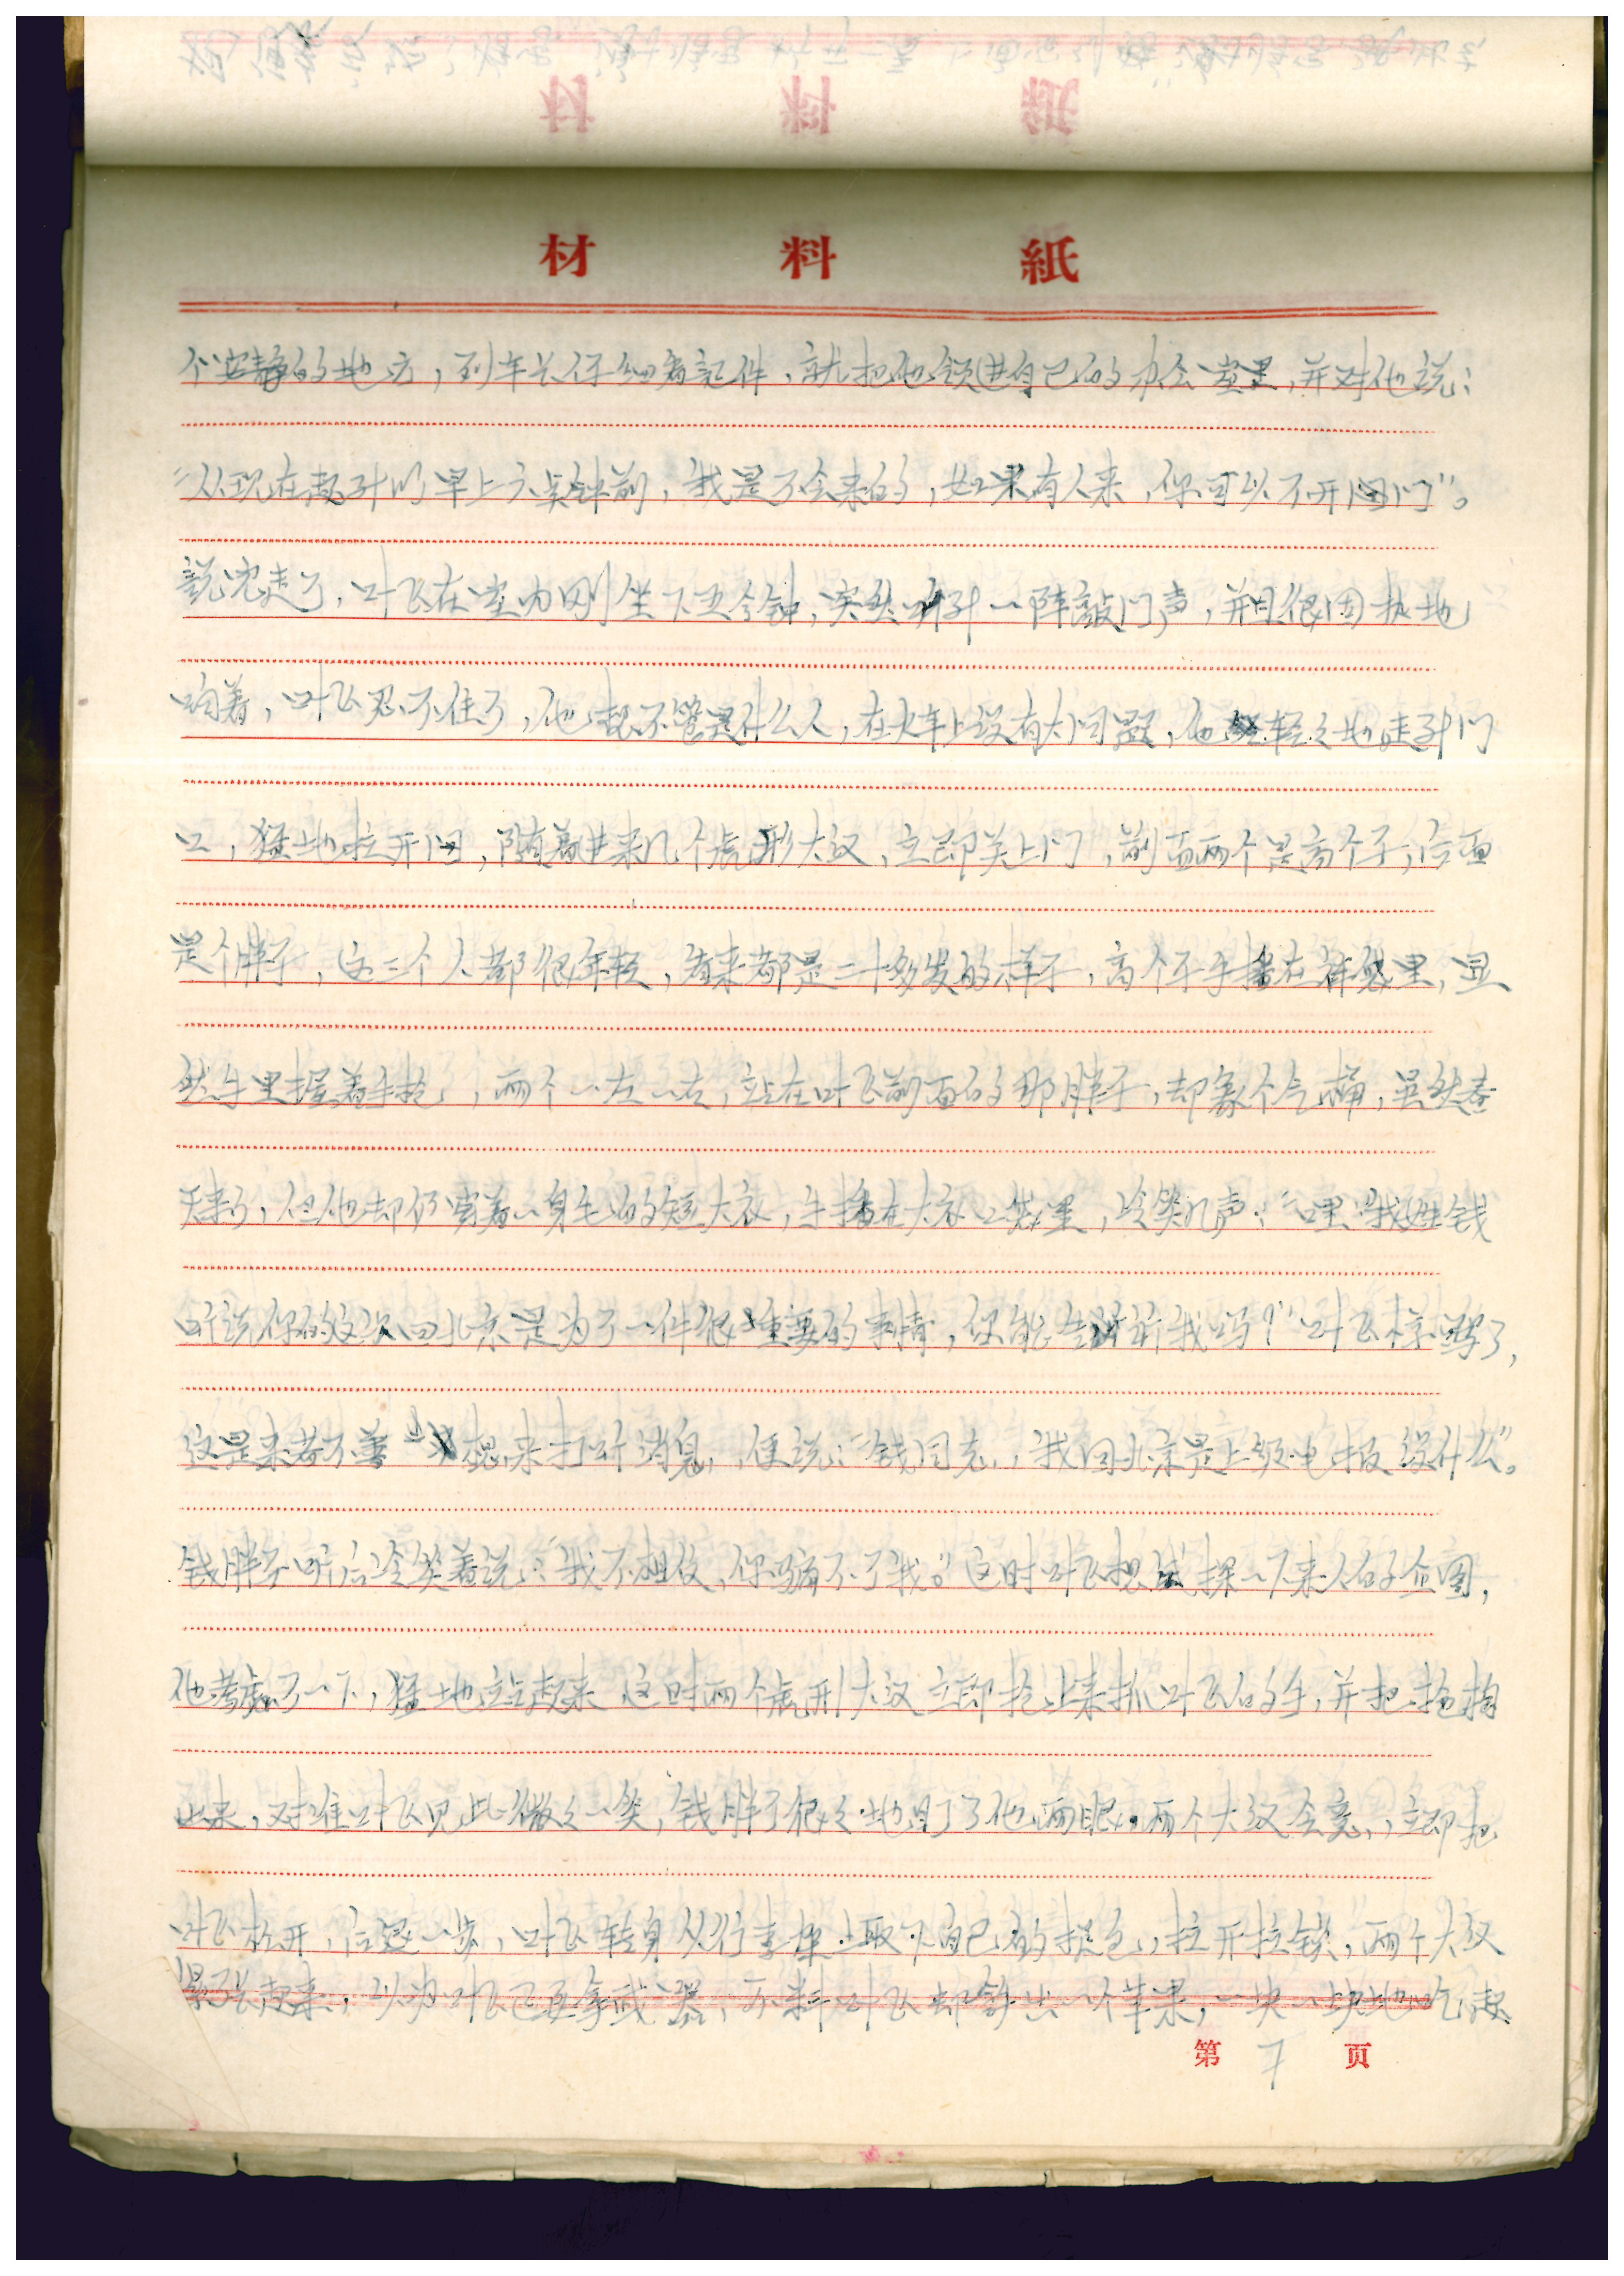 材料紙
个安静的地方，列车长仔细看記件，就把他领进自己的办公室里，并对他说：
“从现在起到明早上六点钟前，我是不会来的，如果有人来，你可以不开门”。
說完走了，叶飞在室内刚坐下五分钟，突然听到一阵敲门声，并且很固执地
响着，叶飞忍不住了，他想不管是什么人，在火车上没有大问题，他轻々地走到门
口，猛地拉开门，随着进来几个彪形大汉，立即关上门，前面两个是高个子，后面
是个胖子，这三个人都很年轻，看来都是二十多岁的样子，高个子手插在裤袋里，显
然手里握着手枪，两个一左一右，站在叶飞前面的那胖子，却象个气桶，虽然春
天来了，但他却仍穿着一身毛的短大衣，手插在大衣口袋里，冷笑几声：“嘿！我姓钱
听说你的这次回北京是为了一件很重要的事情，你能告诉我吗？”叶飞楞了，
这是来者不善 想来打听消息，便说：“钱同志，我回北京是上级电报没什么”。
钱胖子听后冷笑着说：“我不相信，你骗不了我。”这时叶飞想试探一下来人的企图，
他考虑了一下，猛地站起来 这时两个彪形大汉立即抢上来抓叶飞的手，并把枪掏
出来，对准叶飞见此微々一笑，钱胖子狠々地盯了他两眼，两个大汉会意，立即把
叶飞松开，后退一步，叶飞转身从行李架上取下自己的提包，拉开拉锁，两个大汉
紧张起来，以为叶飞要拿武器，不料叶飞却拿出一个苹果，一块一块地吃起
第7页